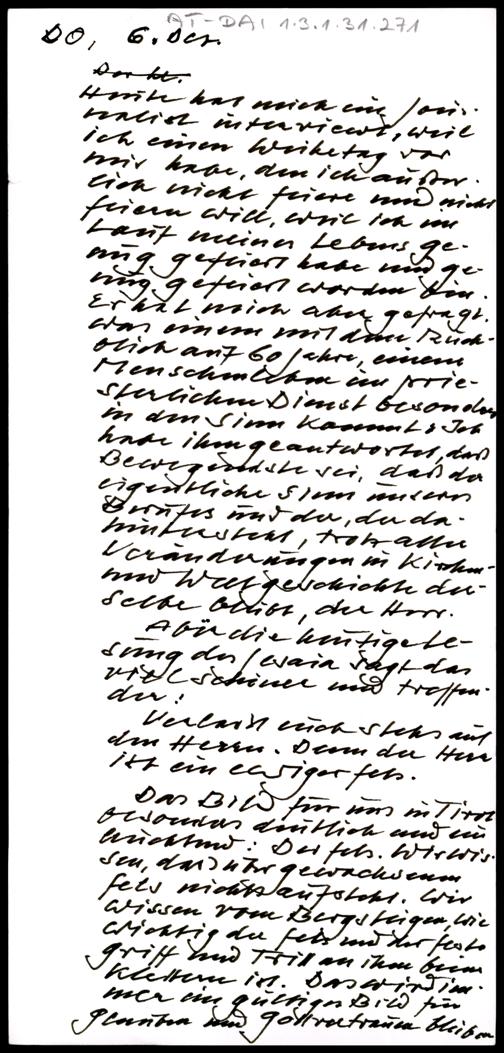 AT-DAI 1.3.1.31.271
DO, 6. Dez.
Heute hat mich ein Jour-
nalist interviewt, weil
ich einen Weihetag vor
mir habe, den ich äußer-
lich nicht feiere und nicht
feiern will, weil ich im
Lauf meines Lebens ge-
nug gefeiert habe und ge-
nug gefeiert worden bin.
Er hat mich aber gefragt,
was einem mit dem Rück-
blick auf 60 Jahre, einem
Menschenleben im prie-
sterlichen Dienst besonders
in den Sinn kommt: Ich
habe ihm geantwortet, das
Bewegendste sei, daß der
eigentliche Sinn unseres
Berufes und der, der da-
hintersteht, trotz aller
Veränderungen in Kirchen-
und Weltgeschichte der-
selbe bleibt, der Herr.
Aber die heutige Le-
sung des Jesaia sagt das
viel schöner und treffen-
der:
Verlaßt euch stets auf
den Herrn. Denn der Herr
ist ein ewiger Fels.
Das Bild für uns in Tirol
besonders deutlich und ein-
leuchtend: Der Fels. Wir wis-
sen, daß über gewachsenem
Fels nichts aufsteht. Wir
wissen vom Bergsteigen, wie
wichtig der Fels und der feste
Griff und Tritt an ihm beim
Klettern ist. Das wird im-
mer ein gültiges Bild für
Glauben und Gottvertrauen bleiben